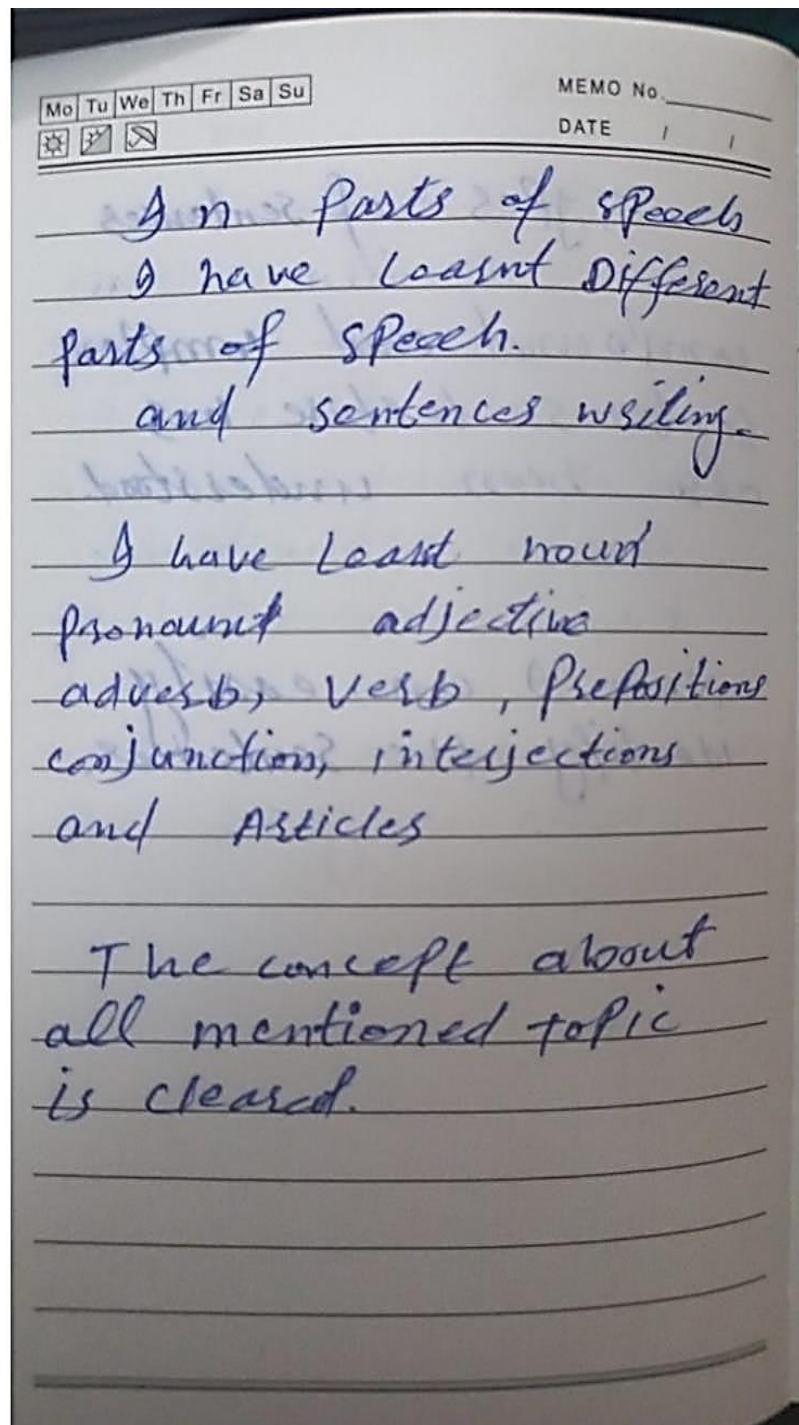 Mo Tu We Th Fr Sa Su
MEMO No.
DATE / /
In Parts of speech
I have Learnt Different
parts of speech.
and sentences writing.
I have Learnt noun
pronoun adjective
adverb, verb, Prepositions
conjunction, interjections
and Articles
The concept about
all mentioned topic
is cleared.